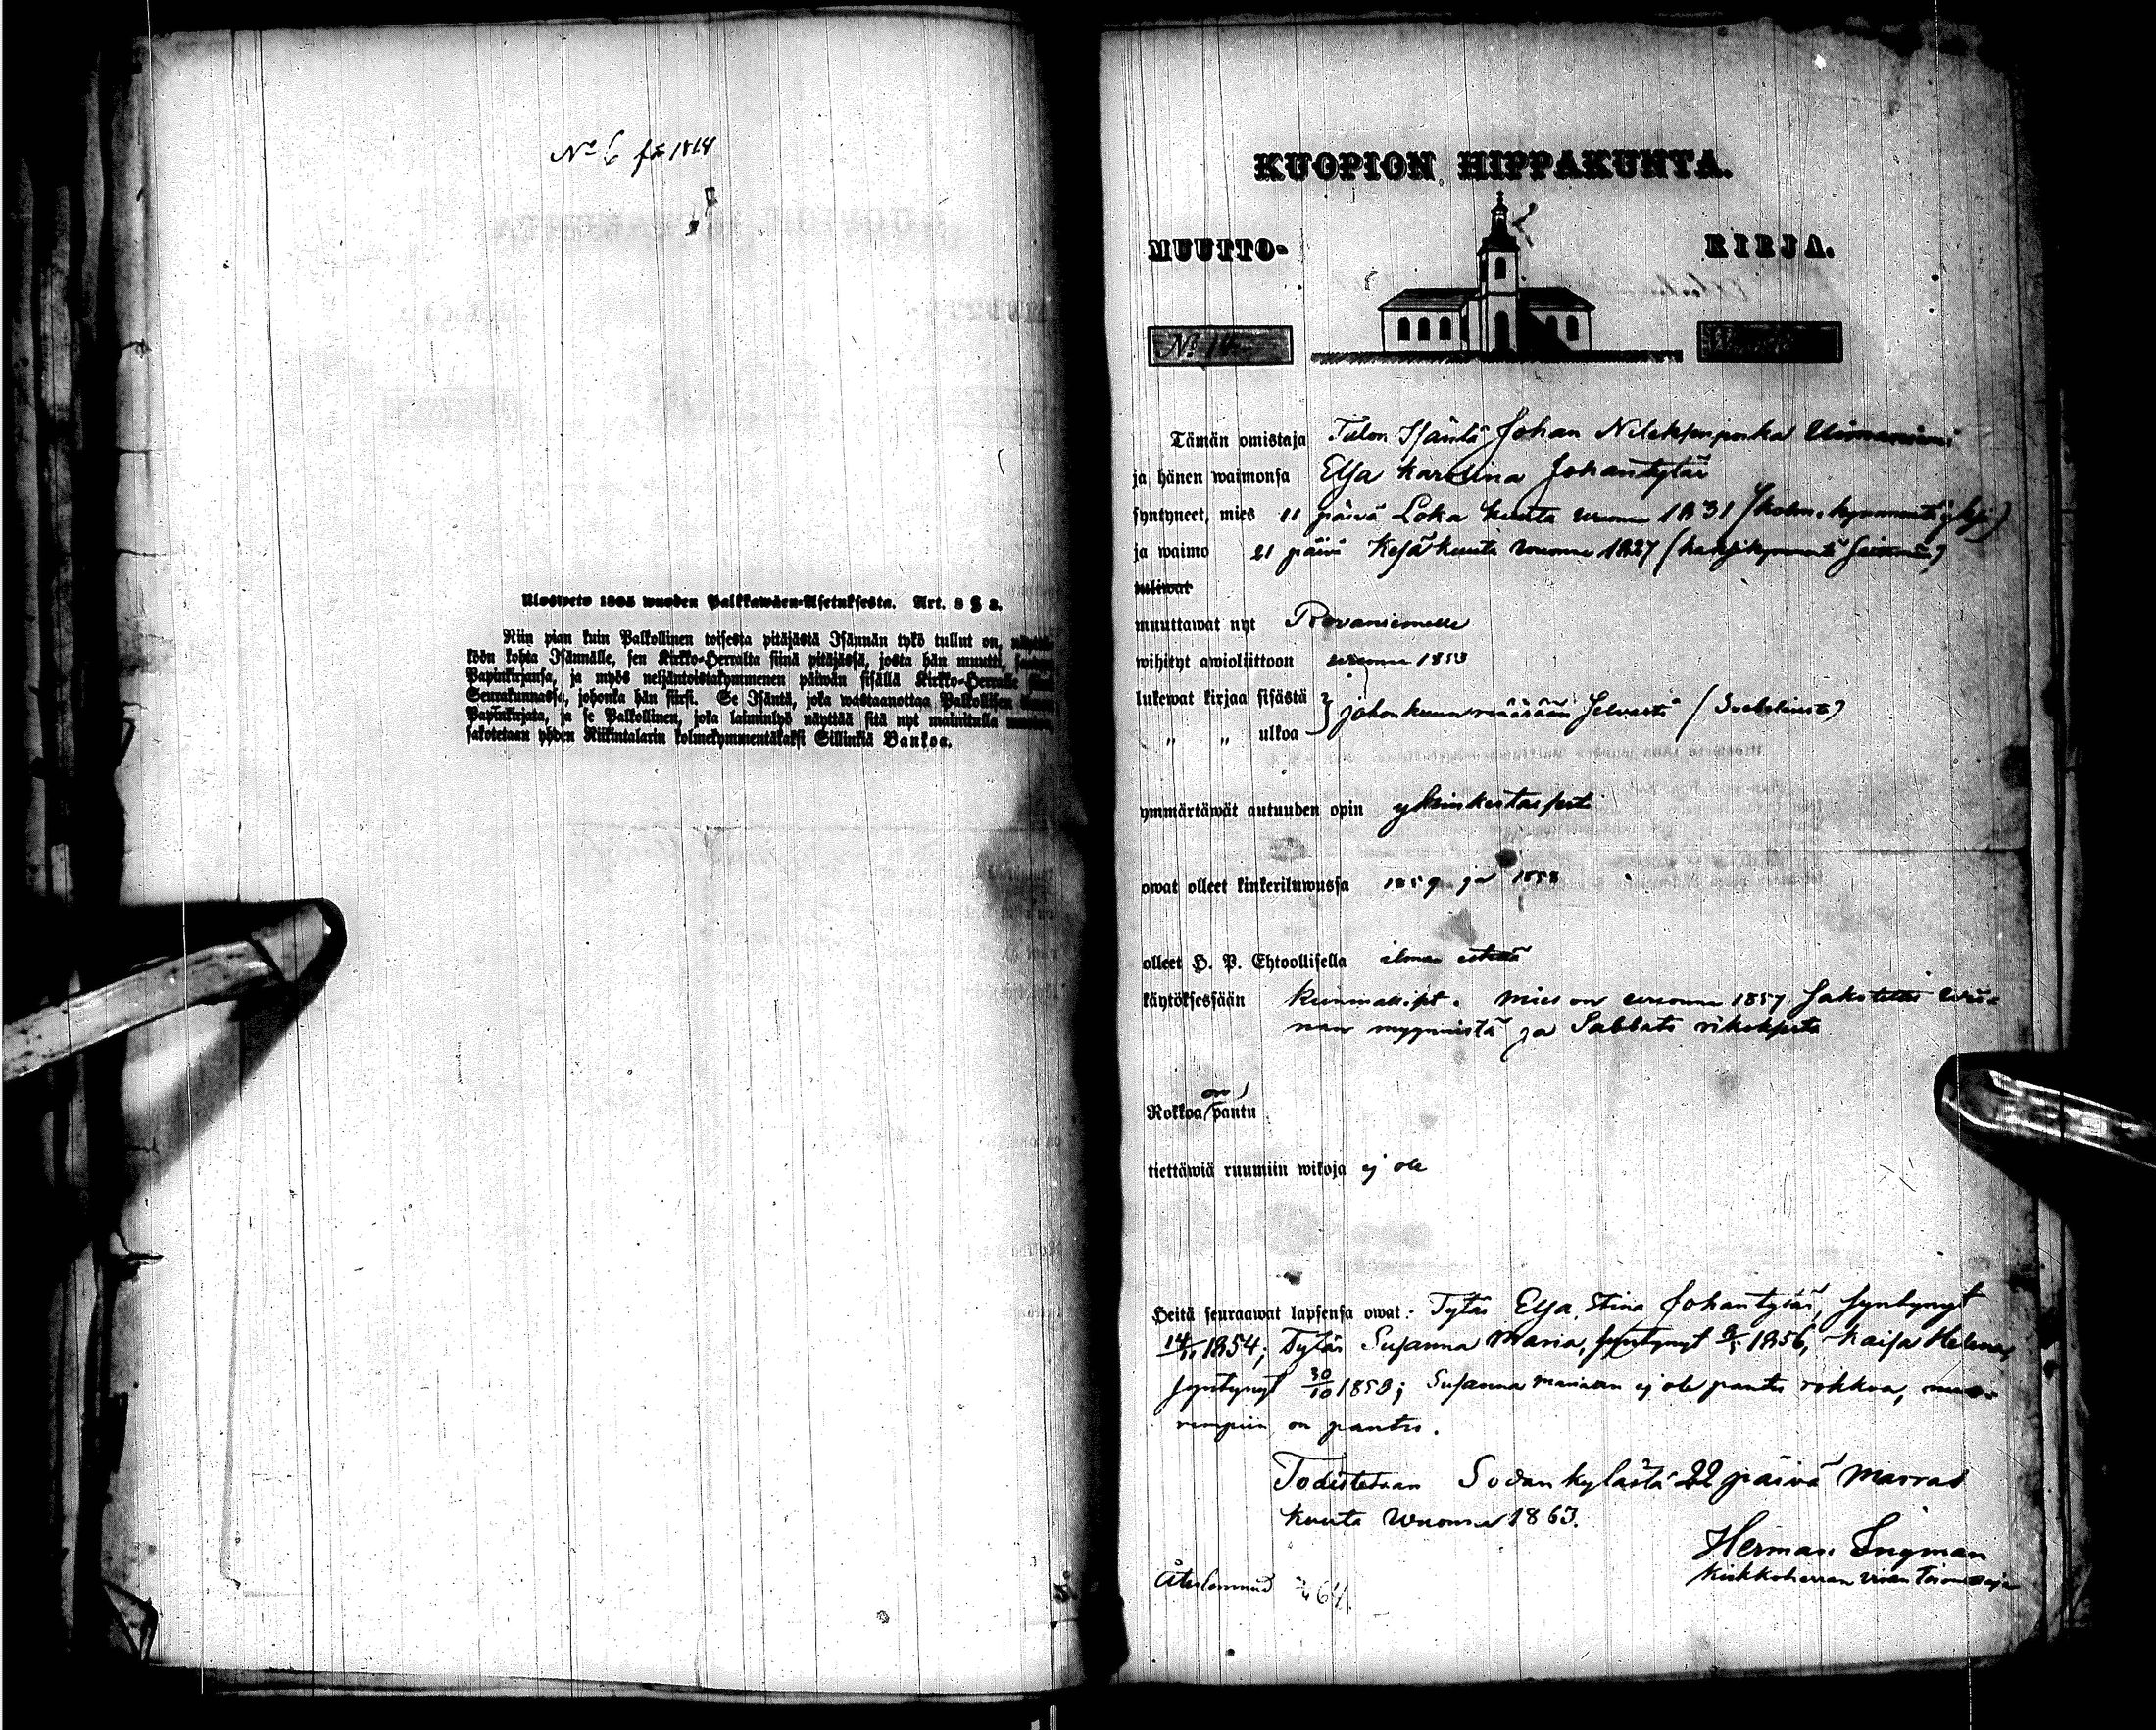 No 6 för 1864
Ulosweto 1805 wuoden Palkkawäen-Asetuksesta. Art. 3 § 3.
Niin pian kuin Palkollinen toisesta pitäjästä Isännän tykö tullut on,
köön kohta Isännälle, sen Kirkko-Herralta siinä pitäjässä, josta hän muutti,
Papinkirjansa, ja myös neljäntoistakymmenen päiwän sisällä Kirkko-Herralle
Seurakunnassa, johonka hän siirsi. Se Isäntä, joka wastaanottaa Palkollisen
Papinkirjata, ja se Palkollinen, joka laiminlyö näyttää sitä nyt mainitulla
sakotetaan yhden Riikintalarin kolmekymmentäkaksi Sillinkiä Bankoa.
KUOPION HIPPAKUNTA.
MUUTTO- KIRJA.
No
Tämän omistaja Talon Isäntä Johan Nilsksenpoika
ja hänen waimonsa Elsa Karolina Johantytär
syntyneet, mies 11 päivä Loka kuuta wuonna 1831 (kolmekymmentä yksi)
ja waimo 21 päivä Kesäkuuta wuonna 1827 (kaksikymmentä seitsemän)
tuliwat
muuttawat nyt Rovaniemelle
wihityt awioliittoon wuonna 1853
lukewat kirjaa sisästä
„ „ ulkoa } johonkuun määrään selvästi
ymmärtäwät autuuden opin yksinkertaisesti
owat olleet kinkeriluwussa 1859 ja 1858
olleet H. P. Ehtoollisella ilman estettä
käytöksessään kunniallist. Mies on wuonna 1857 sakotettu wii-
nan myynnistä ja Sabbats rikoksesta
Rokkoa on pantu
tiettäwiä ruumiin wikoja ej ole
Heitä seuraawat lapsensa owat: Tytär Elsa Stina Johantytär, syntynyt
14/11 1854; Tytär Susanna Maria, syntynyt 1856, Kaisa Helena,
syntynyt 30/10 1859; Susanna Mariaan ej ole pantu rokkoa, muu-
rempiin on pantu.
Todistetaan Sodankylästä 22 päivä Marras
kuuta wuonna 1863.
Herman Ingman
Kirkkoherran viran toimittaja
Återlemnad 64